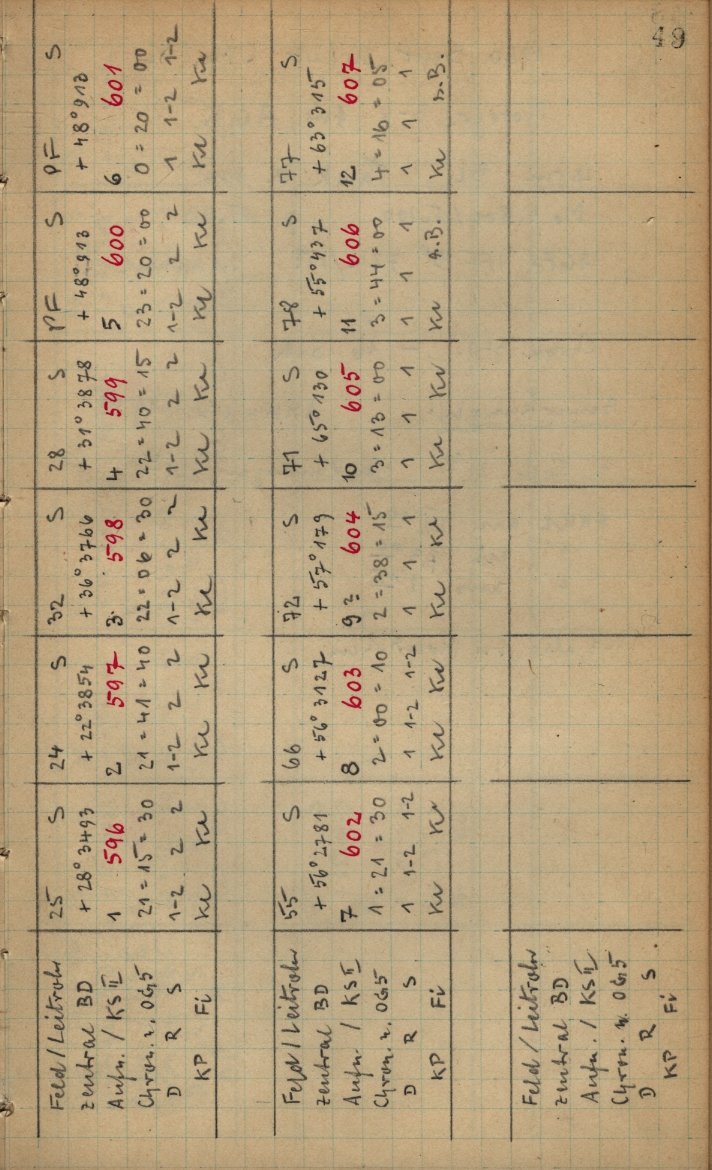 49
Feld / Leitrohr 25 S 24 S 32 S 28 S PF S PF S
zentral BD + 28° 3493 + 22° 3854 + 36° 3766 + 31° 3878 + 48° 913 + 48° 913
Aufn. / KS II 1 596 2 597 3 598 4 599 5 600 6 601
Chron. n. 21 = 15 = 30 21 = 41 = 40 22 = 06 = 30 22 = 40 = 15 23 = 20 = 00 0 = 20 = 00
D R S 1-2 2 2 1-2 2 2 1-2 2 2 1-2 2 2 1-2 2 2 1 1-2 1-2
KP Fi Ke Ke Ke Ke Ke Ke Ke Ke Ke Ke Ke Ke
Feld / Leitrohr 55 S 66 S 72 S 71 S 78 S 77 S
zentral BD + 56° 2781 + 56° 3127 + 57° 179 + 65° 130 + 55° 437 + 63° 315
Aufn. / KS II 7 602 8 603 9 604 10 605 11 606 12 607
Chron. n. 1 = 21 = 30 2 = 00 = 10 2 = 38 = 15 3 = 13 = 00 3 = 44 = 00 4 = 16 = 05
D R S 1 1-2 1-2 1 1-2 1-2 1 1 1 1 1 1 1 1 1 1 1 1
KP Fi Ke Ke Ke Ke Ke Ke Ke Ke Ke s.B. Ke s.B.
Feld / Leitrohr
zentral BD
Aufn. / KS II
Chron. n.
D R S
KP Fi